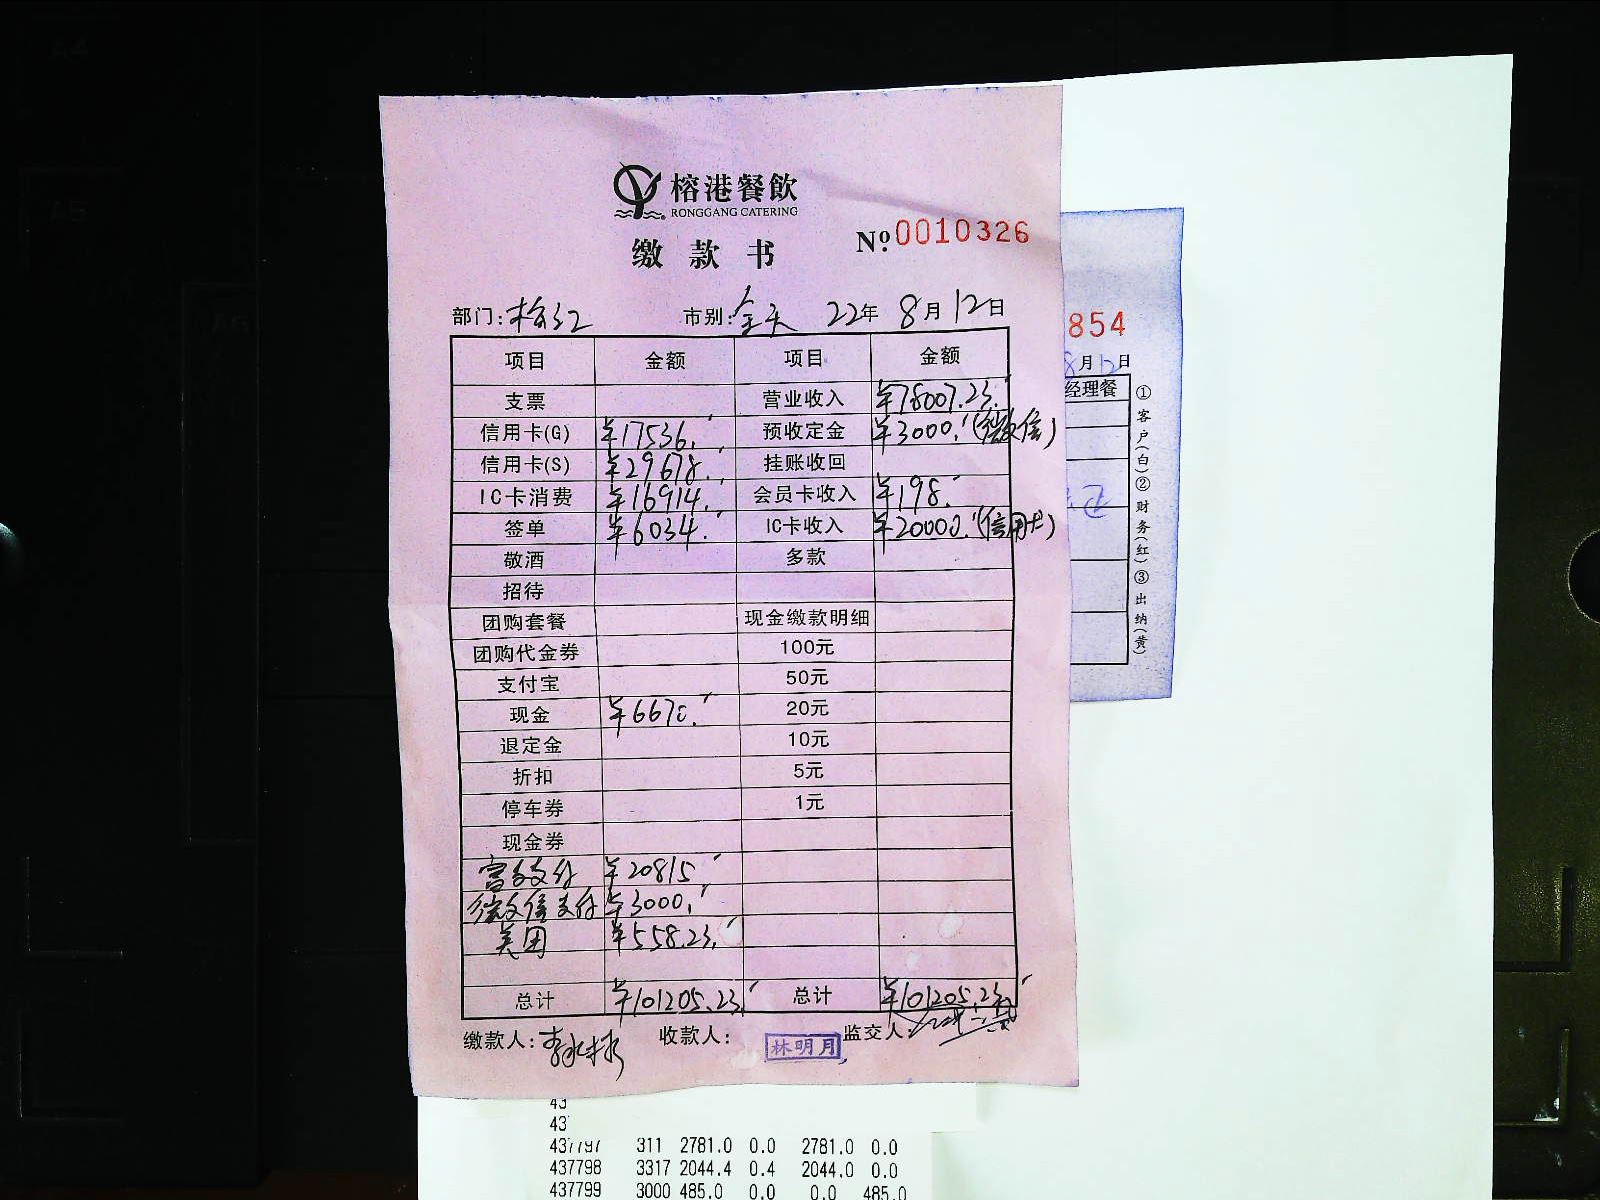 榕港餐飲
RONGGANG CATERING
缴款书
№ 0010326
部门: 市别:全天 22年8月12日
项目 金额 项目 金额
支票 营业收入 ¥78007.23
信用卡(G) ¥17536. 预收定金 ¥3000.(微信)
信用卡(S) ¥29678. 挂账收回
IC卡消费 ¥16914. 会员卡收入 ¥198.
签单 ¥6034. IC卡收入 ¥20000.(信用卡)
敬酒 多款
招待
团购套餐 现金缴款明细
团购代金券 100元
支付宝 50元
现金 ¥6670. 20元
退定金 10元
折扣 5元
停车券 1元
现金券
富友支付 ¥20815
微信支付 ¥3000.
美团 ¥558.23.
总计 ¥101205.23 总计 ¥101205.23
缴款人: 收款人: 林明月 监交人:
854
8月12日
经理餐
①客户(白)②财务(红)③出纳(黄)
43
43
437797 311 2781.0 0.0 2781.0 0.0
437798 3317 2044.4 0.4 2044.0 0.0
437799 3000 485.0 0.0 0.0 485.0